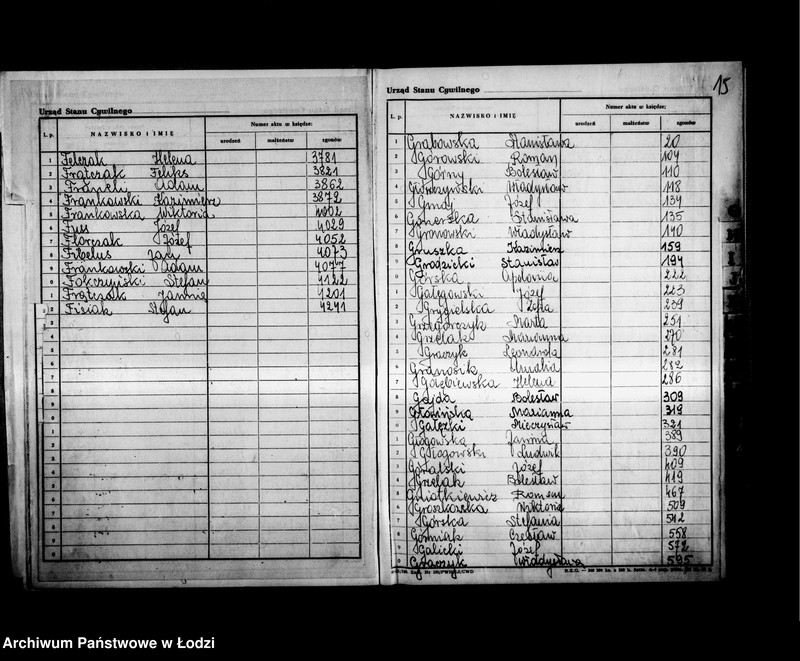 Urząd Stanu Cywilnego
L. p. NAZWISKO i IMIĘ Numer aktu w księdze:
urodzeń małżeństw zgonów
1 Felczak Helena 3781
2 Frątczak Feliks 3821
3 Adam 3862
4 Frankowski Kazimierz 3872
5 Frankowska Wiktoria
6 Józef 4029
7 Florczak Józef 4052
8 4073
9 Frankowski 4077
0 Stefan
1 Frątczak Janina
2 Fisiak Stefan
3
4
5
6
7
8
9
0
1
2
3
4
5
6
7
8
9
0
15
Urząd Stanu Cywilnego
L. p. NAZWISKO i IMIĘ Numer aktu w księdze:
urodzeń małżeństw zgonów
1 Grabowska Stanisława 20
2 Górowski Roman 104
3 Górny Bolesław 110
4 Władysław 118
5 Józef 134
6 Stanisława 135
7 Gronowski Władysław 140
8 Gruszka Kazimierz 159
9 Grodzicki Stanisław 194
0 Górska Apolonia 222
1 Gałęgowski Józef 223
2 Grygielska Zofia 239
3 Grzegorczyk Marta 251
4 Grzelak Marianna 270
5 Graczyk Leonarda 281
6 Granosik Amalia 282
7 Gołębiewska Helena 286
8 Gajda Bolesław 309
9 Głowińska Marianna 319
0 Gałęzki Mieczysław 321
1 Głogowska Janina 389
2 Głogowski Ludwik 390
3 Góralski Józef 409
4 Grzelak Bolesław 419
5 Gniotkiewicz Roman 467
6 Groszkowska Wiktoria 509
7 Górska Stefania 542
8 Górniak Czesław 558
9 Galicki Józef 572
0 Graczyk Władysława 595